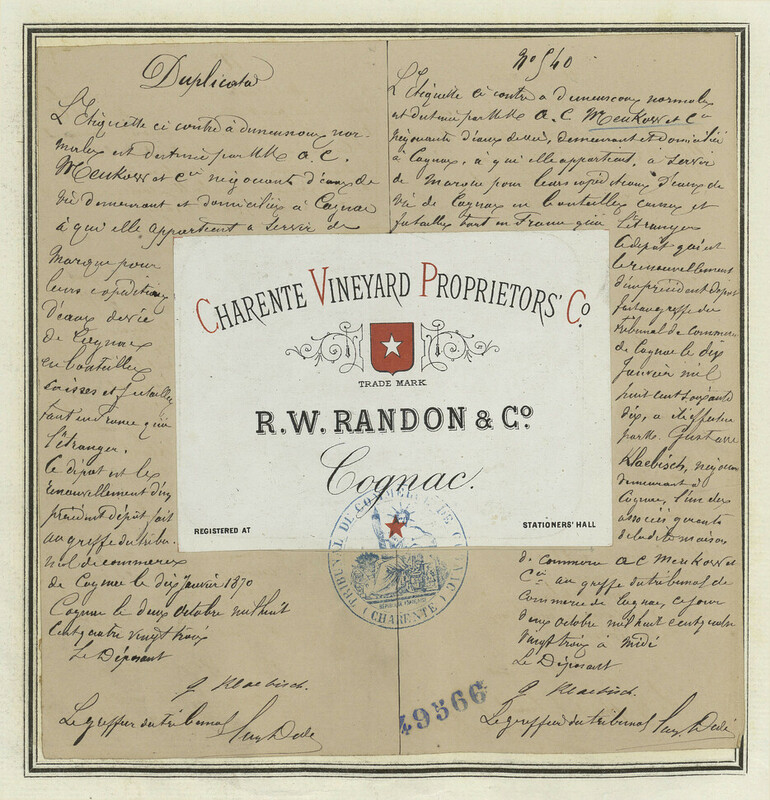 Duplicata
L'Etiquette ci contre à dimensions nor-
males est destinée par MM. A. C.
Meukow et Cie négociants d'eaux de
vie demeurant et domiciliés à Cognac
à qui elle appartient à servir de
Marque pour
leurs expéditions
d'eaux de vie
de Cognac
en bouteilles
caisses et futailles
tant en France qu'à
l'étranger.
Ce dépôt est le
renouvellement d'un
précédent dépôt fait
au greffe du tribu-
nal de commerce
de Cognac le dix Janvier 1870
Cognac le deux Octobre mil huit
cent quatre vingt trois
Le Déposant
G Klaebisch.
Le greffier du tribunal
No 540
L'Etiquette ci contre à dimensions normales
est destinée par MM. A. C. Meukow et Cie
négociants d'eaux de vie, demeurant et domiciliés
à Cognac, à qui elle appartient, à servir
de Marque pour leurs expéditions d'eaux de
vie de Cognac en bouteilles caisses et
futailles tant en France qu'à l'étranger
Ce dépôt qui est
le renouvellement
d'un précédent dépôt
fait au greffe du
tribunal de commerce
de Cognac le dix
Janvier mil
huit cent soixante
dix, a été effectué
par M. Gustave
Klaebisch, négociant
demeurant à
Cognac, l'un des
associés gérants
de la dite maison
de commerce A C Meukow et
Cie au greffe du tribunal de
Commerce de Cognac, ce jour
deux Octobre mil huit cent quatre
vingt trois à midi
Le Déposant
G Klaebisch.
Le greffier du tribunal
CHARENTE VINEYARD PROPRIETORS' Co.
TRADE MARK
R.W. RANDON & Co.
Cognac.
REGISTERED AT
STATIONERS' HALL
TRIBUNAL DE COMMERCE DE COGNAC
( CHARENTE )
49566